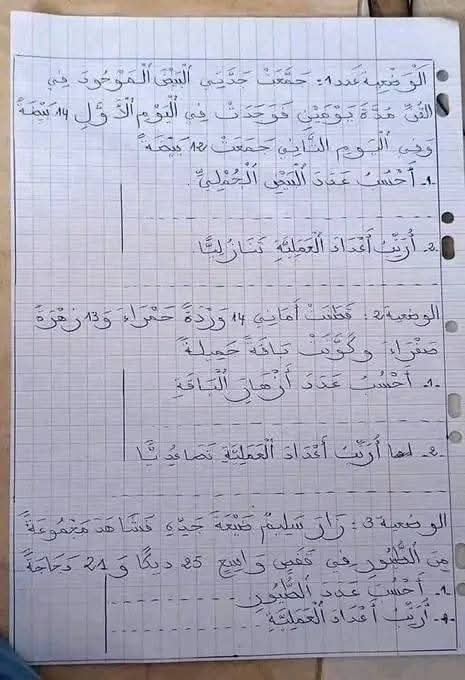 الْوَضْعِيَّة عَدَد 1: جَمَّعَتْ جَدَّتِي الْبَيْضَ الْمَوْجُودَ فِي
الْخُنِّ مُدَّةَ يَوْمَيْنِ فَوَجَدَتْ فِي الْيَوْمِ الْأَوَّلِ 14 بَيْضَةً
وَفِي الْيَوْمِ الثَّانِي جَمَعَتْ 12 بَيْضَةً
1- أَحْسُبُ عَدَدَ الْبَيْضِ الْجُمْلِيَّ.
2- أُرَتِّبُ أَعْدَادَ الْعَمَلِيَّةِ تَنَازُلِيًّا
الوضعية 2: قَطَفَتْ أَمَانِي 14 وَرْدَةً حَمْرَاءَ وَ 13 زَهْرَةً
صَفْرَاءَ وَكَوَّنَتْ بَاقَةً جَمِيلَةً
1- أَحْسُبُ عَدَدَ أَزْهَارِ الْبَاقَةِ
2- أُرَتِّبُ أَعْدَادَ الْعَمَلِيَّةِ تَصَاعُدِيًّا
الوضعية 3: زَارَ سَلِيمٌ ضَيْعَةَ جَدِّهِ فَشَاهَدَ مَجْمُوعَةً
مِنَ الطُّيُورِ فِي قَفَصٍ وَاسِعٍ 25 دِيكًا وَ 21 دَجَاجَةً
1- أَحْسُبُ عَدَدَ الطُّيُورِ
- أُرَتِّبُ أَعْدَادَ الْعَمَلِيَّةِ